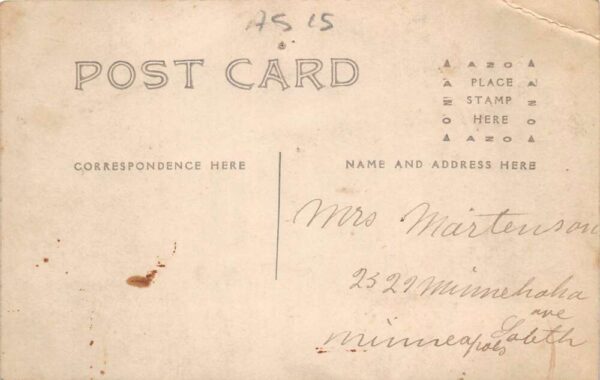 AS 15
POST CARD
AZO
PLACE
STAMP
HERE
AZO
CORRESPONDENCE HERE
NAME AND ADDRESS HERE
Mrs Martenson
2529 Minnehaha
ave
South
Minneapolis